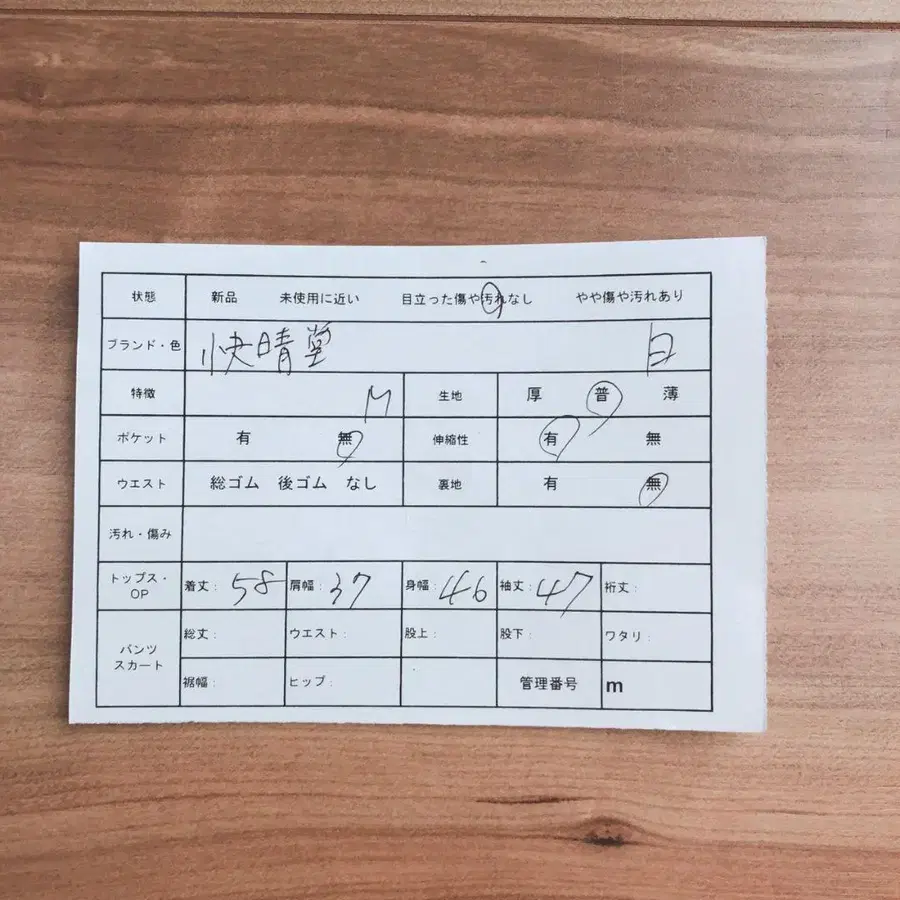 状態 新品 未使用に近い 目立った傷や汚れなし やや傷や汚れあり
ブランド・色 快晴堂 白
特徴 M 生地 厚 普 薄
ポケット 有 無 伸縮性 有 無
ウエスト 総ゴム 後ゴム なし 裏地 有 無
汚れ・傷み
トップス・OP 着丈: 58 肩幅: 37 身幅: 46 袖丈: 47 裄丈:
パンツ スカート 総丈: ウエスト: 股上: 股下: ワタリ:
裾幅: ヒップ: 管理番号 m